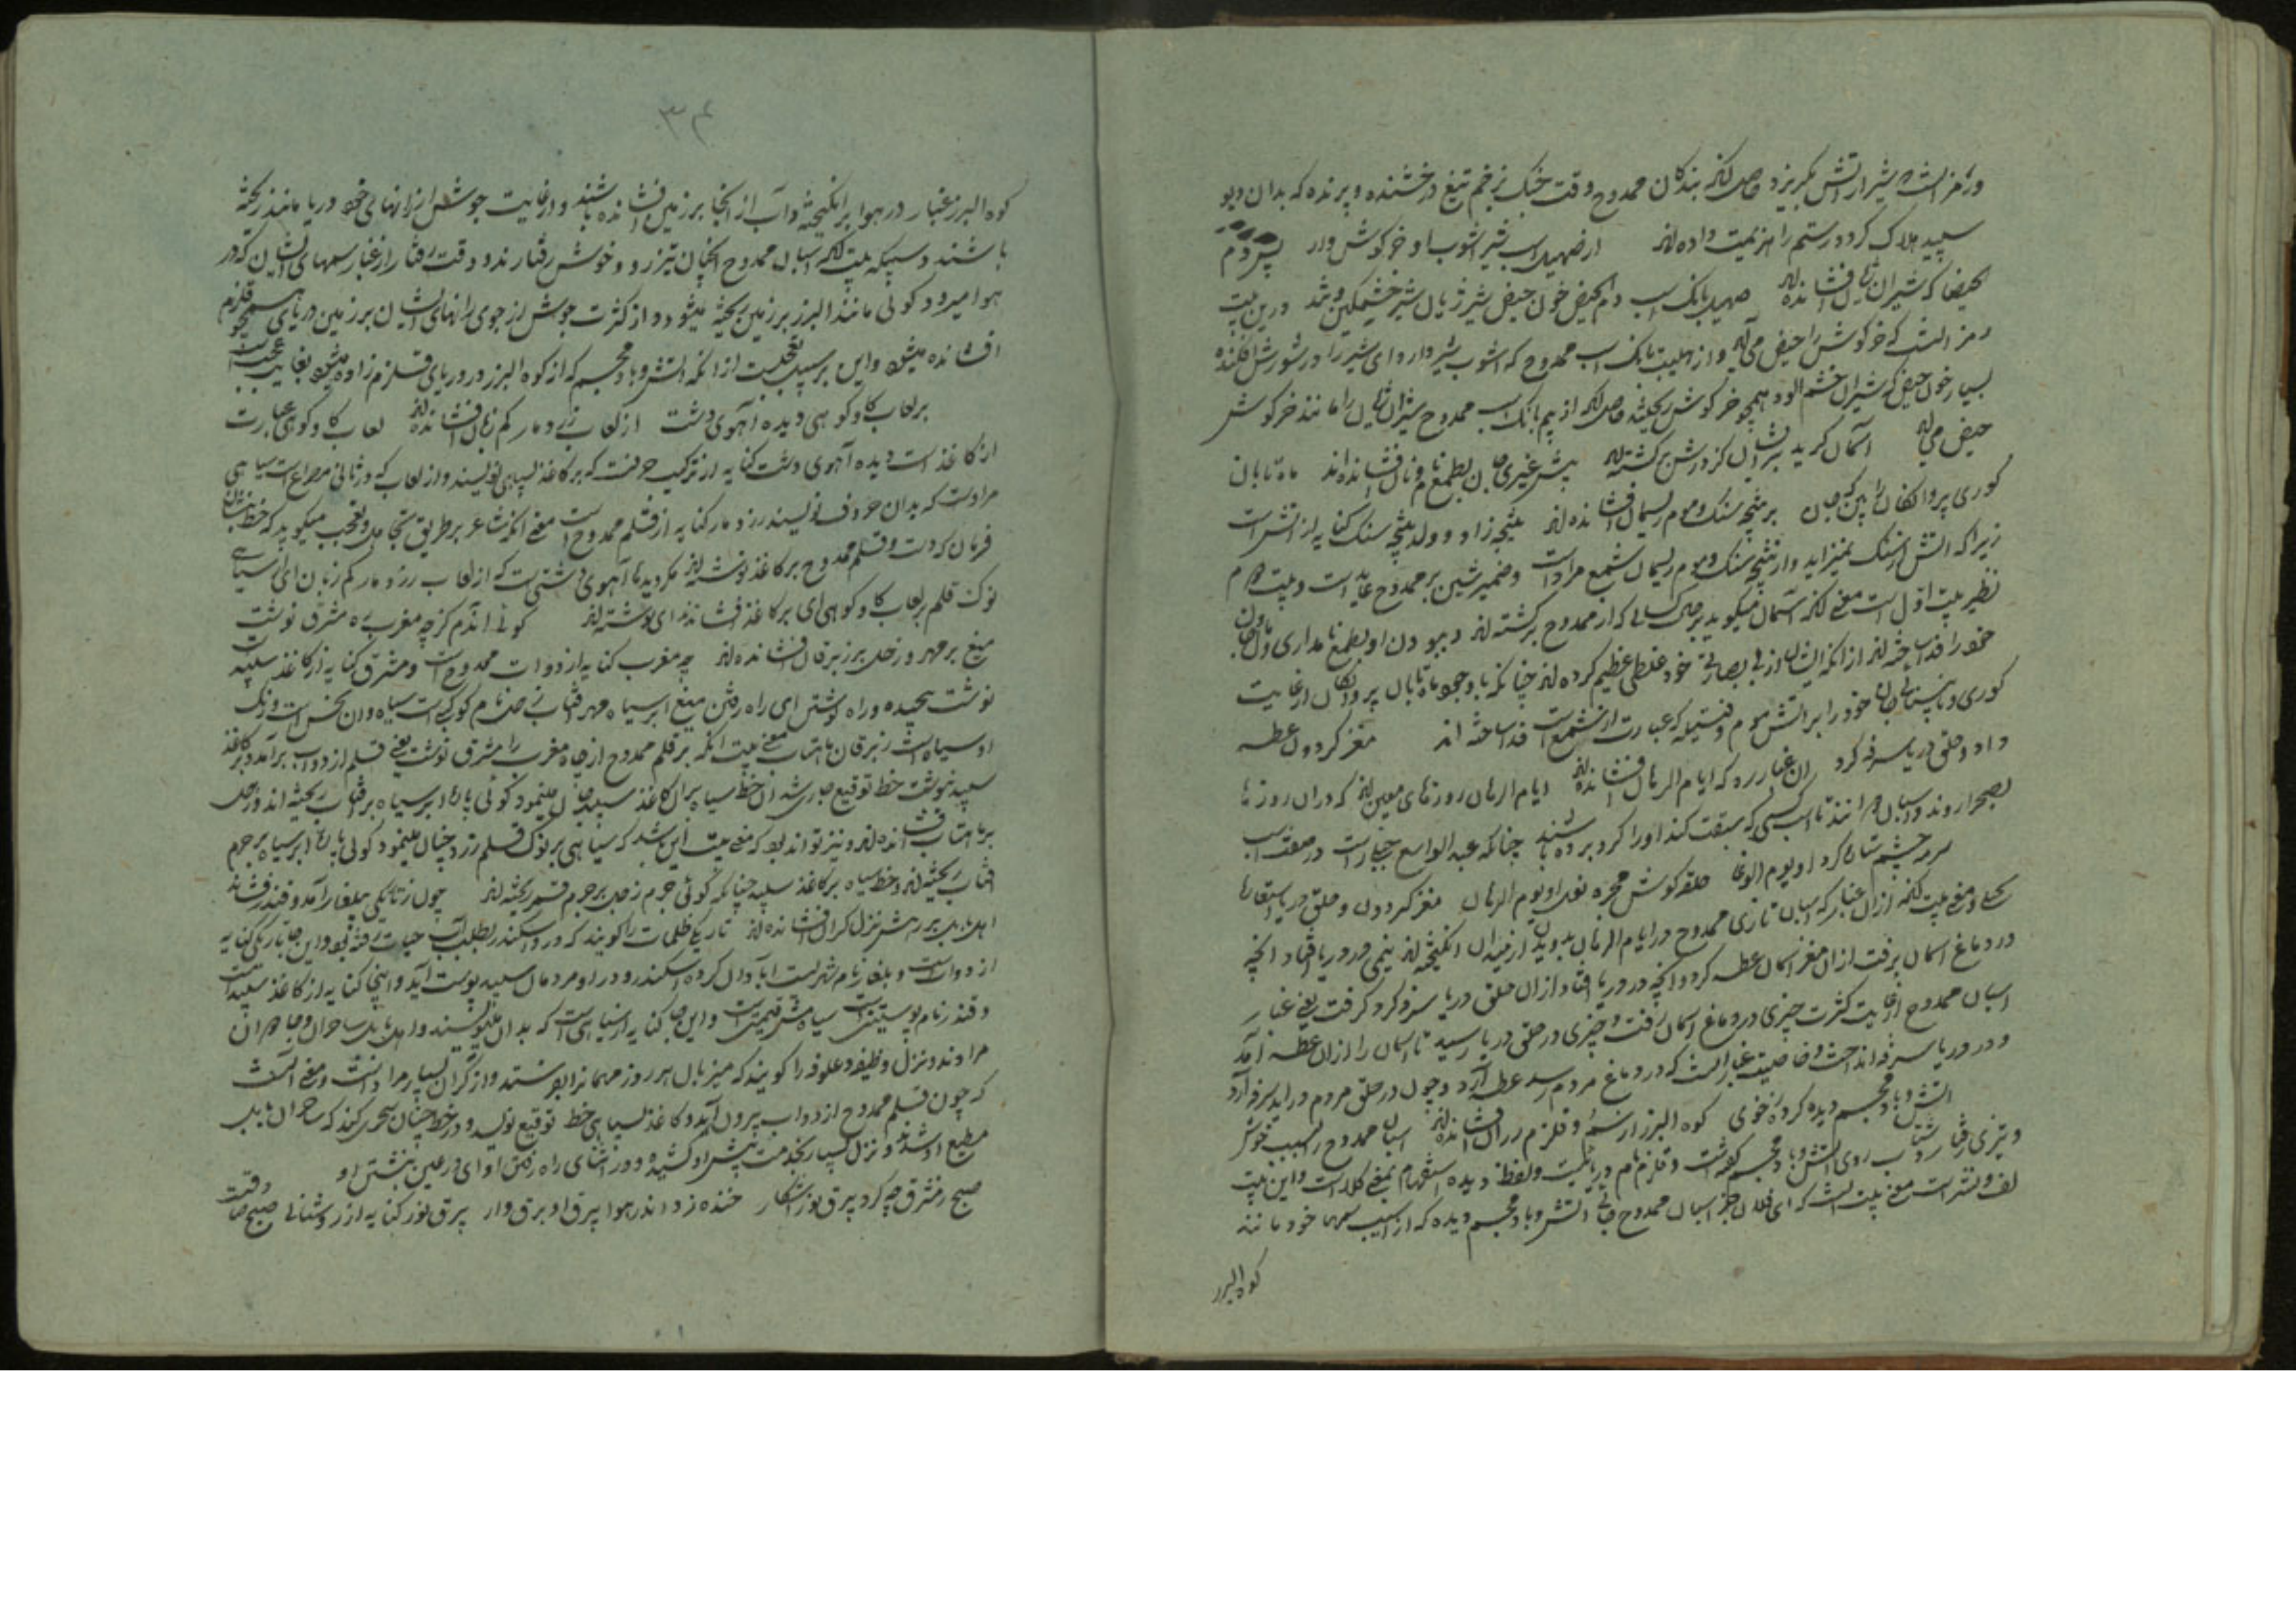 ورمز انست که شیر از آتش بگریزد حاصل آنکه بندگان ممدوح وقت جنگ بزخم تیغ درخشنده و پرنده که بدان دیو
سپید هلاک کرد و رستم را هزیمت داده‌اند از صهیل اسب شیر آشوب او خرگوش وار پس دم
الحیضا که شیران ژیان افشانده‌اند صهیل بانگ اسپ دم الحیض خون حیض شیر ژیان شیر خشمگین و درین بیت
رمز انست که خرگوش را حیض می‌آید و از هیبت بانگ اسپ ممدوح که آشوب شیر دارد ای شیر را در شورش افکنده
بسیار خون حیض که شیران خشم آلود همچو خرگوش ریخته حاصل آنکه از بیم بانگ اسپ ممدوح شیران ژیان را مانند خرگوش
حیض می‌آید آسمان گرید بر آنشان کز درش برگشته‌اند پیش غیری جان بطمع نام و نان افشانده‌اند ماه تابان
کوری پروانگان را بین که جان بر نتیجه سنگ و موم ریسمان افشانده‌اند نتیجه زاد و ولد نتیجه سنگ کنایه از آتش است
زیرا که آتش از سنگ میزاید و از نتیجه سنگ و موم ریسمان شمع مراد است و ضمیر شین بر ممدوح عاید است و بیت دوم
نظیر بیت اول است معنی آنکه آسمان میگوید بر حال کسانی که از ممدوح برگشته‌اند و ببودن او بطمع نامداری و نان جان
خود را فدا ساخته‌اند از آنکه ایشان از بی بصارتی خود غلطی عظیم کرده‌اند چنانکه با وجود ماه تابان پروانگان از غایت
کوری و نابینائی جان خود را بر آتش موم و فتیله که عبارت از شمع است فدا ساخته اند مغز گردون عطسه
داد و حلق دریا سرفه کرد زان غبار ره که ایام الرهان افشانده‌اند ایام الرهان روزهای معین‌اند که دران روزها
بصحرا روند و اسپان دوانند تا اسپ کسی که سبقت کند او را گرو برده باشند چنانکه عبد الواسع جبلی راست در صفت اسپ
سرمه چشم ستاره گرد او یوم الوغا حلقه گوش مجره نعل او یوم الرهان مغز گردون و حلق دریا استعاره
است و معنی بیت آنکه ازان غبار که اسپان تازی ممدوح در ایام الرهان بدویدن از میدان انگیخته‌اند نیمی در دریا افتاد آنچه
در دماغ آسمان برفت ازان مغز آسمان عطسه کرد و آنچه در دریا افتاد ازان حلق دریا سرفه کردن گرفت یعنی غبار
اسپان ممدوح از غایت کثرت چیزی در دماغ آسمان رفت و چیزی در حلق دریا رسید تا آسمان را ازان عطسه آمد
و در دریا سرفه انداخت و خاصیت غبار انست که در دماغ مردم رسد عطسه آرد و چون در حلق مردم در آید سرفه آرد
آتش و باد مجسم دیده کز گرد و خوی کوه البرز از سم و قلزم ز ران افشانده‌اند اسپان ممدوح بسبب خوش
و تیزی رفتار و شتاب روی آتش و باد مجسم گفته است و قلزم نام دریائیست و لفظ دیده استفهام بمعنی کلام است و این بیت
لف و نشر است معنی بیت انست که ای فلان بجز اسپان ممدوح جائی آتش و باد مجسم دیده که از آسیب سمها خود مانند
کوه البرز
۳۴
کوه البرز غبار در هوا برانگیخته و آب از آنجا بر زمین افشانده باشند و از غایت جوشش از رانهای خود دریا مانند ریخته
باشند و سبکه بیت آنکه اسپان ممدوح آنچنان تیزرو و خوش رفتارند و وقت رفتار از غبار سمهای ایشان که در
هوا میرود گوئی مانند البرز بر زمین ریخته میشود و از کثرت جوشش از جوی رانهای ایشان بر زمین دریای همچو قلزم
افشانده میشود و این بر سبیل تعجب است از آنکه آتش و باد مجسم که از کوه البرز در دریای قلزم زاده میشود بغایت عجب است
بر لعاب گاو کوهی دیده آهوی دشت از لعاب زرد مار کم زبان افشانده‌اند لعاب گاو کوهی عبارت
از کاغذ است دیده آهوی دشت کنایه از ترکیب حرفست که بر کاغذ بسیاهی نویسند و از لعاب که در ثانی مصراع است سیاهی
مراد است که بدان حروف نویسند زرد مار کنایه از قلم ممدوح است معنی آنکه شاعر بر طریق تجاهل و تعجب میگوید که خط نشان
فرمان که دست و قلم ممدوح بر کاغذ نوشته‌اند مگر دیده‌ها آهوی دشتی است که از لعاب زرد مار کم زبان ای از سیاهی
نوک قلم بر لعاب گاو کوهی ای بر کاغذ افشانده‌اند ای نوشته‌اند گوئی اندم کز چه مغرب ره مشرق نوشت
میغ بر مهر و زحل بر زبرقان افشانده‌اند چه مغرب کنایه از دوات ممدوح است و مشرق کنایه از کاغذ سپید است
نوشت پیچیده و راه نوشتن ای راه رفتن میغ ابر سیاه مهر آفتاب زحل نام کوکبی است سیاه و آن نحس است و رنگ
او سیاه است زبرقان ماهتاب معنی بیت آنکه هر قلم ممدوح از چاه مغرب راه مشرق نوشت یعنی قلم از دوات برآمد و بر کاغذ
سپید نوشت خط توقیع جاری شد آن خط سیاه بران کاغذ سپید چنان مینمود گوئی پاره ابر سیاه بر آفتاب ریخته اند و زحل
بر ماهتاب افشانده‌اند و نیز تواند بود که معنی بیت این باشد که سیاهی بر نوک قلم زرد چنان مینمود گوئی پاره ابر سیاه بر جرم
آفتاب ریخته‌اند و خط سیاه بر کاغذ سپید چنانکه گوئی جرم زحل بر جرم قمر ریخته‌اند چون ز تاریکی ببلغار آمد و قندز فشاند
اهل بابل بر رهش نزل گران افشانده‌اند تاریکی ظلمات را گویند که در او سکندر بطلب آب حیات رفته بود و این جا تاریکی کنایه
از دوات است و بلغار نام شهریست آبادان کرده اسکندر و در او مردمان سپید پوست آید و اینجا کنایه از کاغذ سپید است
و قندز نام پوستینی است سیاه بیش قیمت است و این جا کنایه از سیاهی است که بدان مینویسند و اهل بابل ساحران و جاهران
مراد و نزل وظیفه و علوفه را گویند که میزبان هر روز مهمانرا بفرستد و از گران بسیار مراد است و معنی آنست
که چون قلم ممدوح از دوات بیرون آید و کاغذ بسیاهی خط توقیع نویسد و در خط چنان سحری کند که ساحران بابل
مطیع او شوند و نزل بسیار بخدمت پیش او کشیده و در اثنای راه رفتن او ای در عین نبشتن او
صبح ز مشرق چه کرد بیرق نور آشکار خنده زد اندر هوا بیرق او برق وار بیرق نور کنایه از روشنائی صبح صادقست